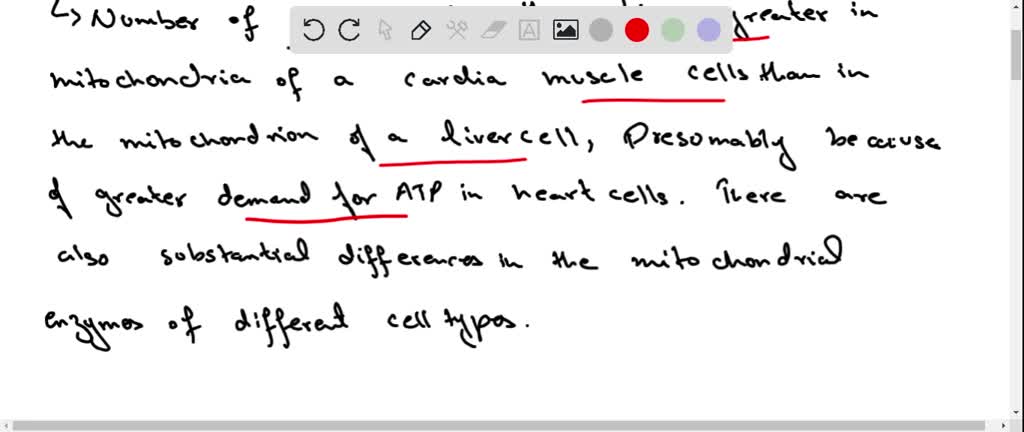 ↳ Number of greater in
mitochondria of a cardia muscle cells than in
the mitochondrion of a liver cell, Presomably because
of greater demand for ATP in heart cells. There are
also substantial differences in the mitochondrial
enzymes of different cell types.